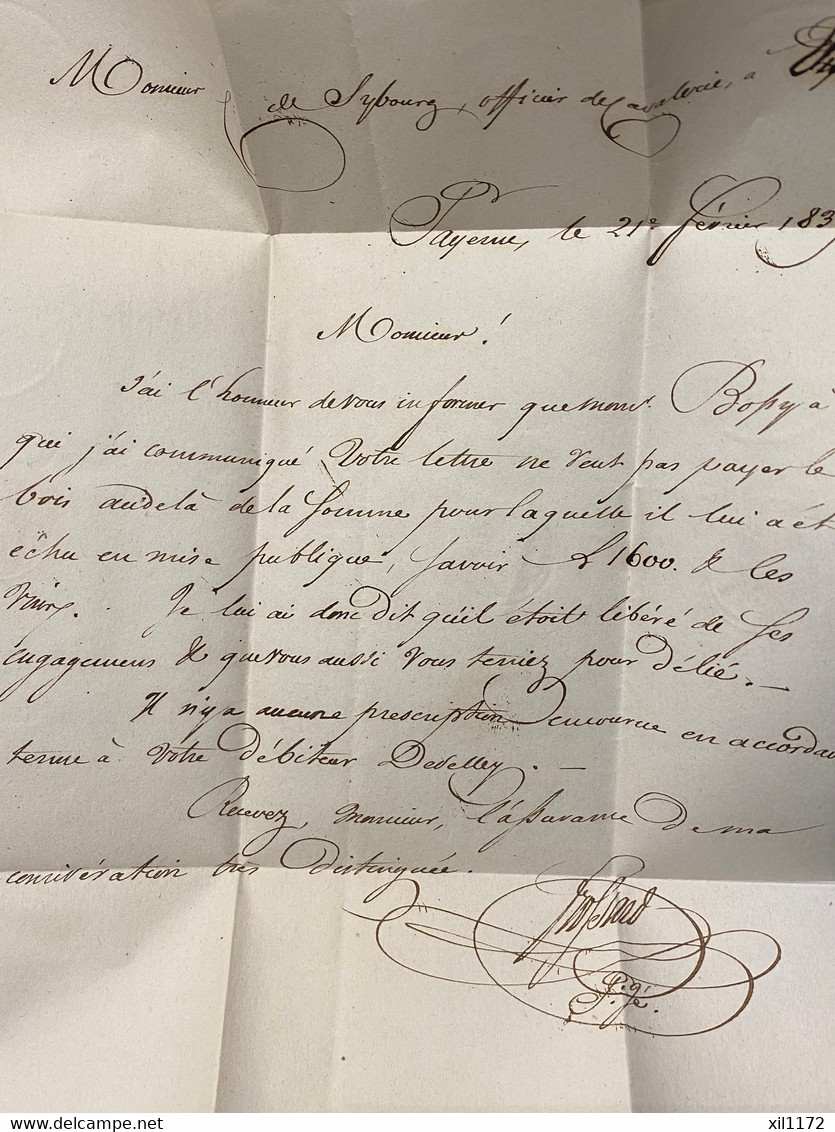 Monsieur de Sybourg, officier de Cavalerie, à
Payerne, le 21e. février 183
Monsieur!
J'ai l'honneur de vous informer que monsr. Bossy à
qui j'ai communiqué Votre lettre ne veut pas payer le
bois audelà de la somme pour laquelle il lui a ét
échu en mise publique, savoir £ 1600. & les
Vins. Je lui ai donc dit qu'il étoit libéré de ses
engagemens & que vous aussi Vous teniez pour délié. –
Il n'y a aucune prescription encourue en accordan
terme à Votre débiteur Develley. –
Recevez, Monsieur, l'assurance de ma
considération très distinguée.
Frossard
P. gé.
delcampe.net
xil1172